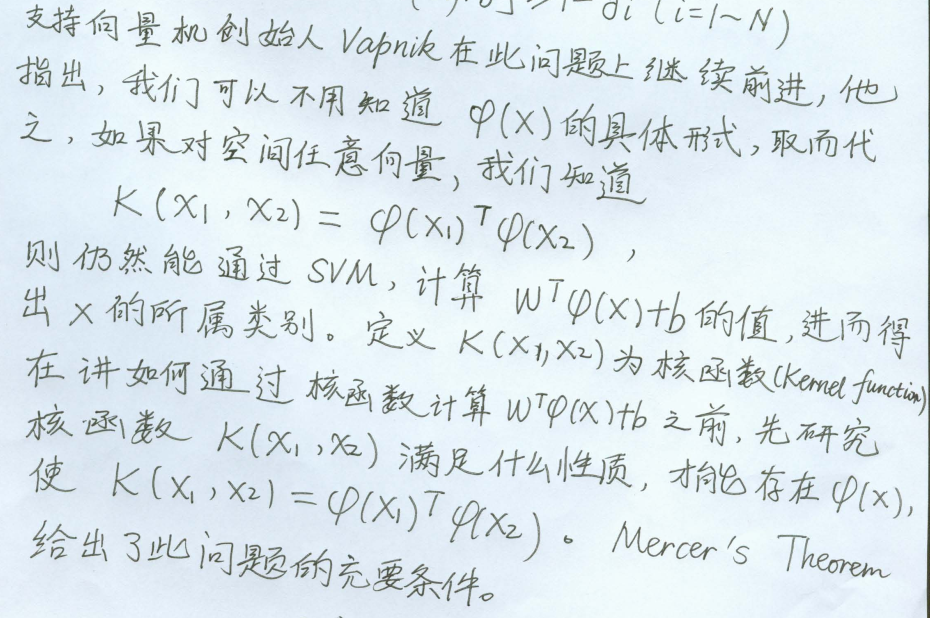 ≥1-δi (i=1~N)
支持向量机创始人 Vapnik 在此问题上继续前进，他
指出，我们可以不用知道 φ(X)的具体形式，取而代
之，如果对空间任意向量，我们知道
K(X1, X2) = φ(X1)ᵀφ(X2)，
则仍然能通过 SVM，计算 Wᵀφ(X)+b 的值，进而得
出 X 的所属类别。定义 K(X1,X2)为核函数(Kernel function)
在讲如何通过核函数计算 Wᵀφ(X)+b 之前，先研究
核函数 K(X1, X2) 满足什么性质，才能存在 φ(X)，
使 K(X1, X2) = φ(X1)ᵀφ(X2)。Mercer's Theorem
给出了此问题的充要条件。